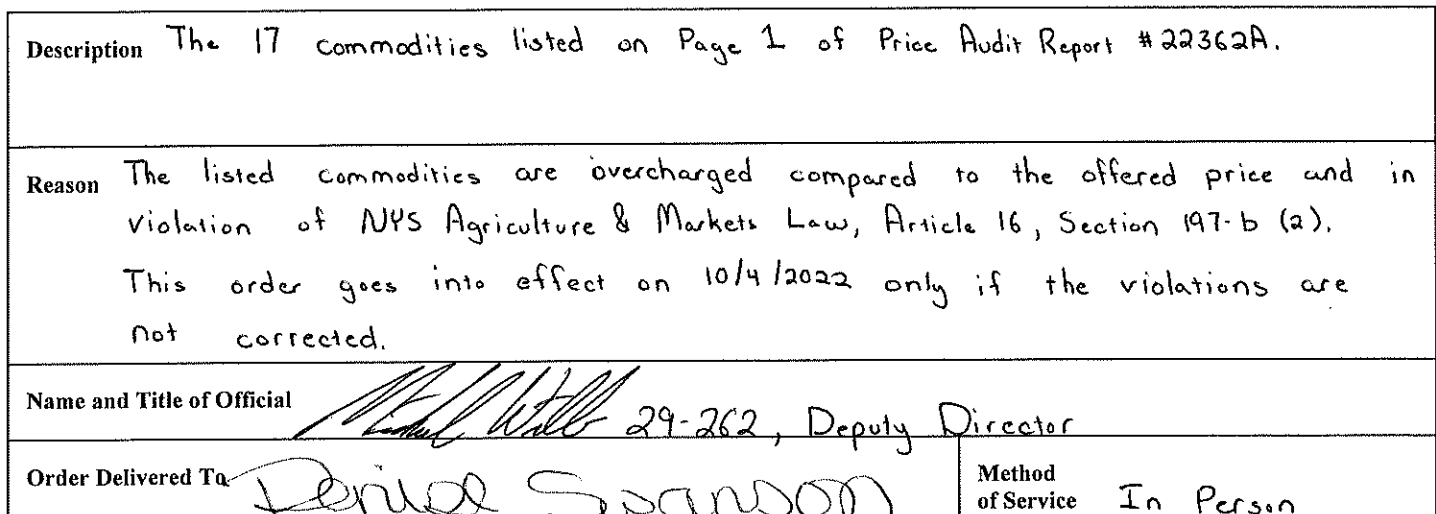 Description The 17 commodities listed on Page 1 of Price Audit Report #22362A.
Reason The listed commodities are overcharged compared to the offered price and in
violation of NYS Agriculture & Markets Law, Article 16, Section 197-b (2).
This order goes into effect on 10/4/2022 only if the violations are
not corrected.
Name and Title of Official Michael 29-262, Deputy Director
Order Delivered To Denise Swanson
Method
of Service In Person